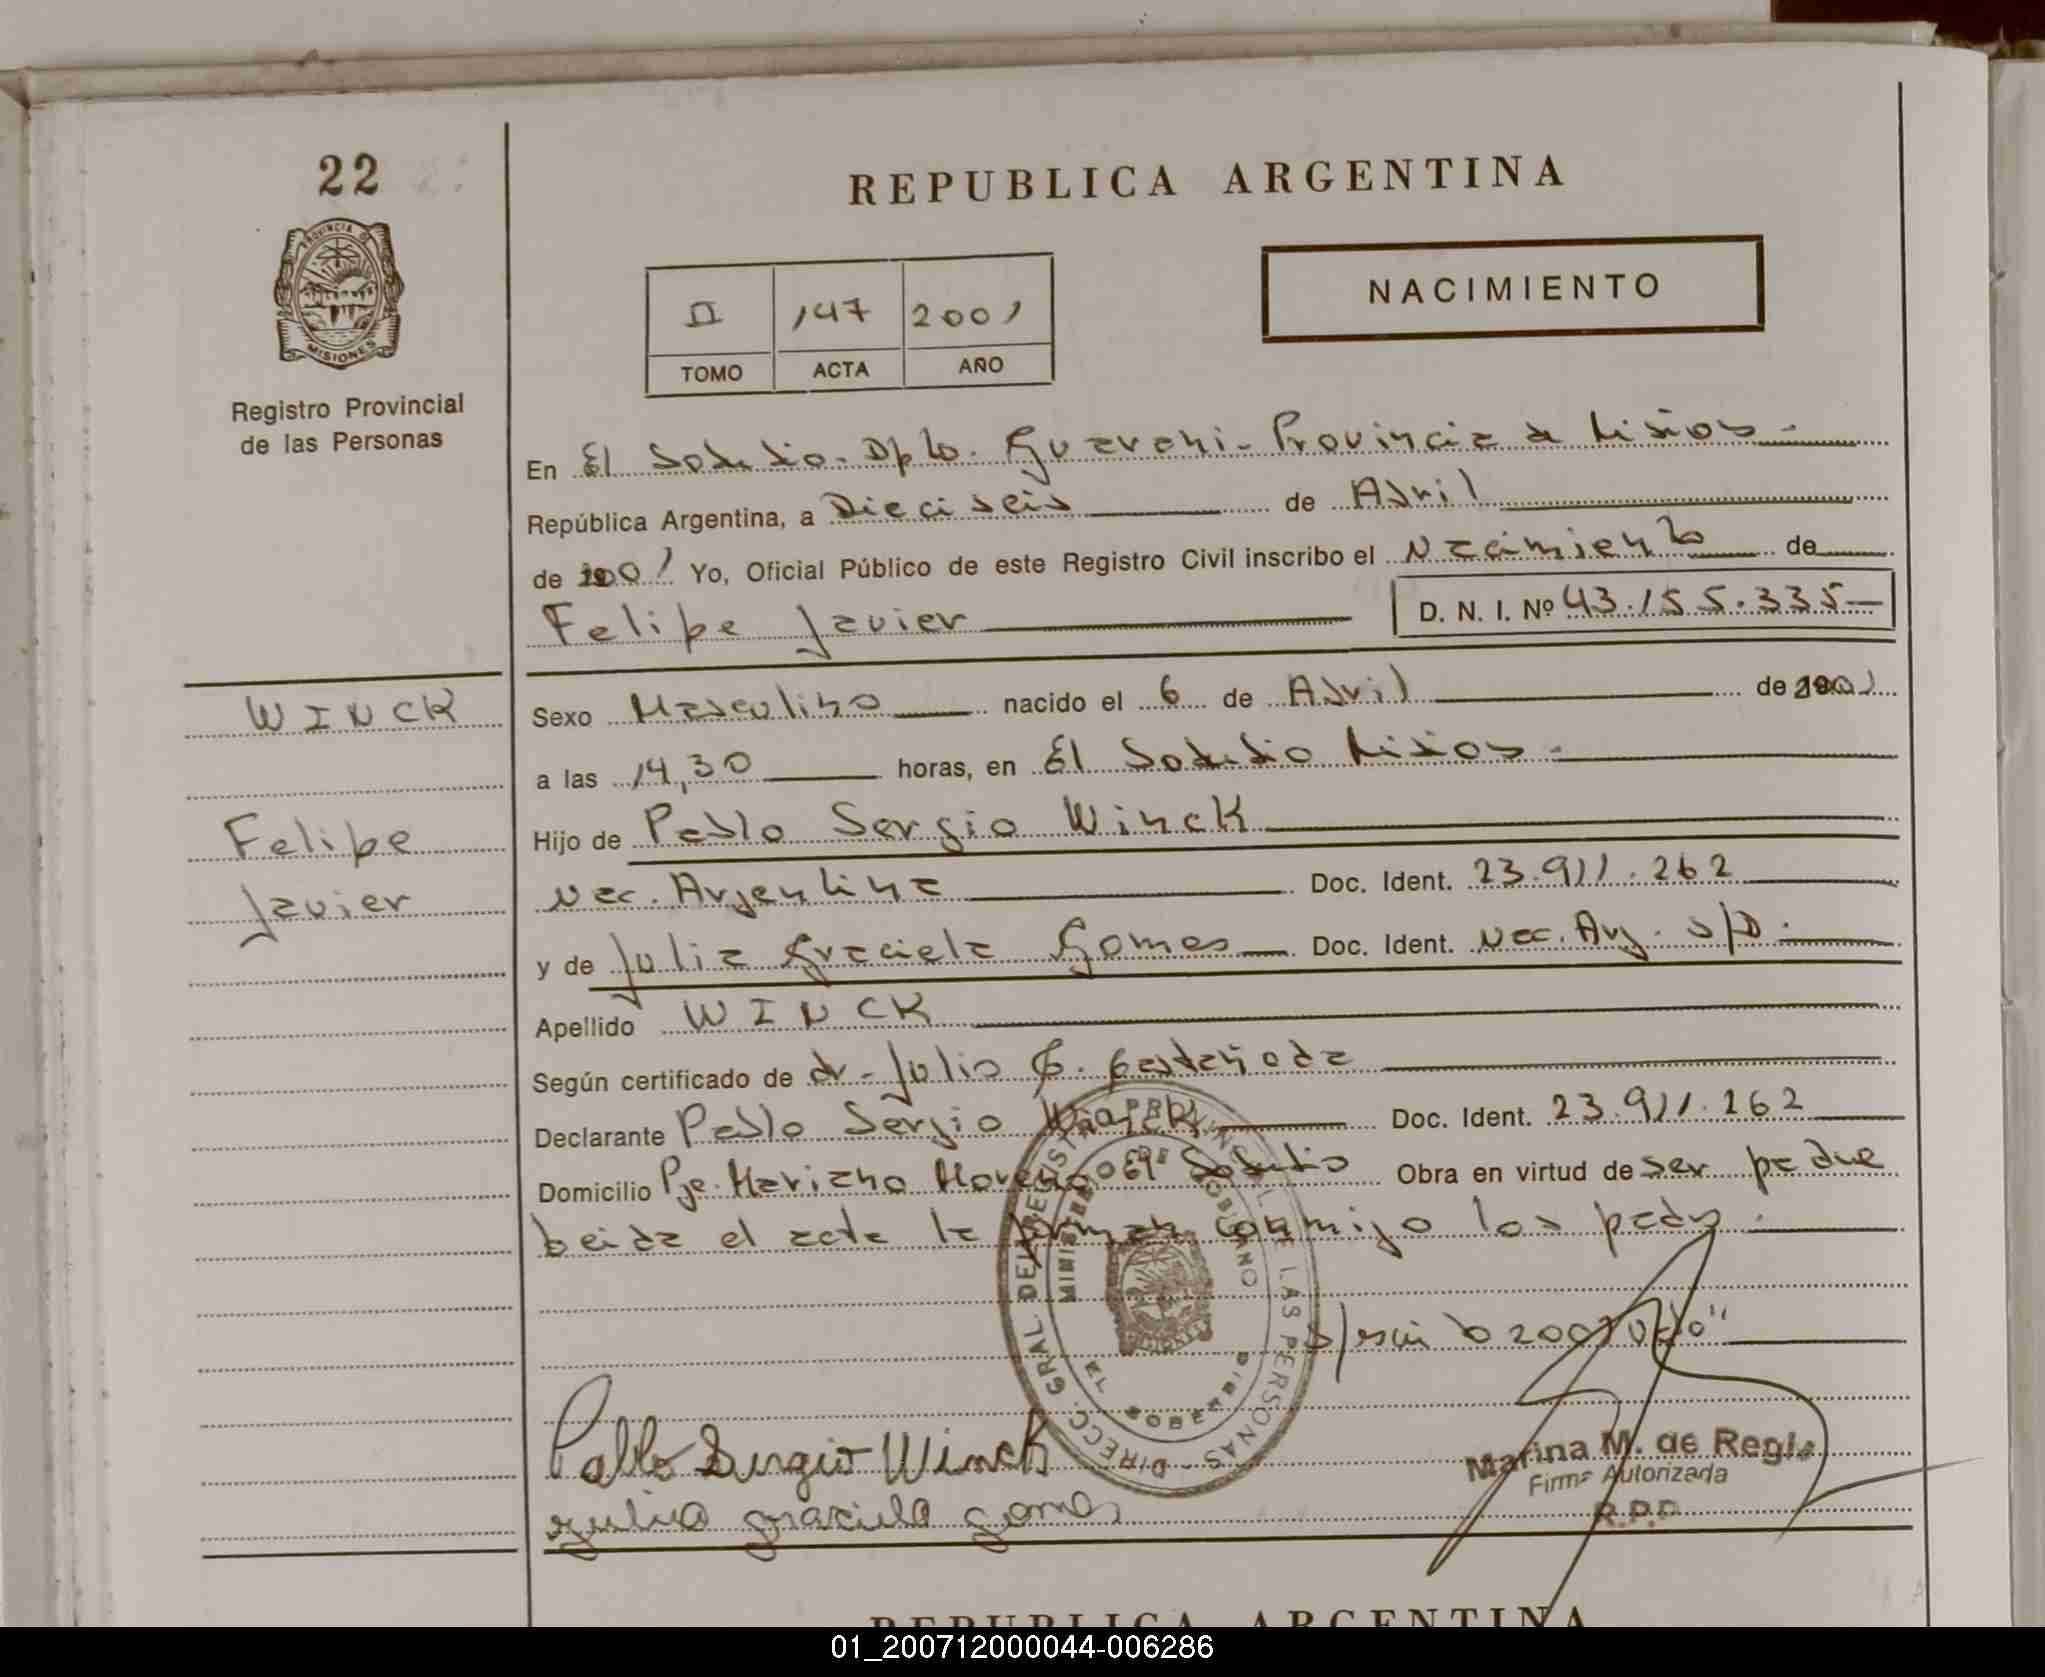 22
REPUBLICA ARGENTINA
PROVINCIA DE
MISIONES
NACIMIENTO
II 147 2001
TOMO ACTA AÑO
Registro Provincial
de las Personas
En El Soberbio. Dpto. Guarani - Provincia de Misiones
República Argentina, a Dieciseis de Abril
de 2001 Yo, Oficial Público de este Registro Civil inscribo el Nacimiento de
Felipe Javier D. N. I. Nº 43.155.335
WINCK
Felipe
Javier
Sexo Masculino nacido el 6 de Abril de 2001
a las 14,30 horas, en El Soberbio Misiones
Hijo de Pablo Sergio Winck
Nac. Argentina Doc. Ident. 23.911.262
y de Julia Graciela Gomes Doc. Ident. Nac. Arg. S/D.
Apellido WINCK
Según certificado de dr. Julio Castañoda
Declarante Pablo Sergio Winck Doc. Ident. 23.911.262
Domicilio Pje. Mariano Moreno El Soberbio Obra en virtud de ser padre
Leida el acta la firman conmigo los padres.
DIRECC. GRAL. DEL REGISTRO PROVINCIAL DE LAS PERSONAS
MINISTERIO DE GOBIERNO
Pablo Sergio Winck
Julia graciela gomes
Marina M. de Regis
Firma Autorizada
R.P.P
REPUBLICA ARGENTINA
01_200712000044-006286